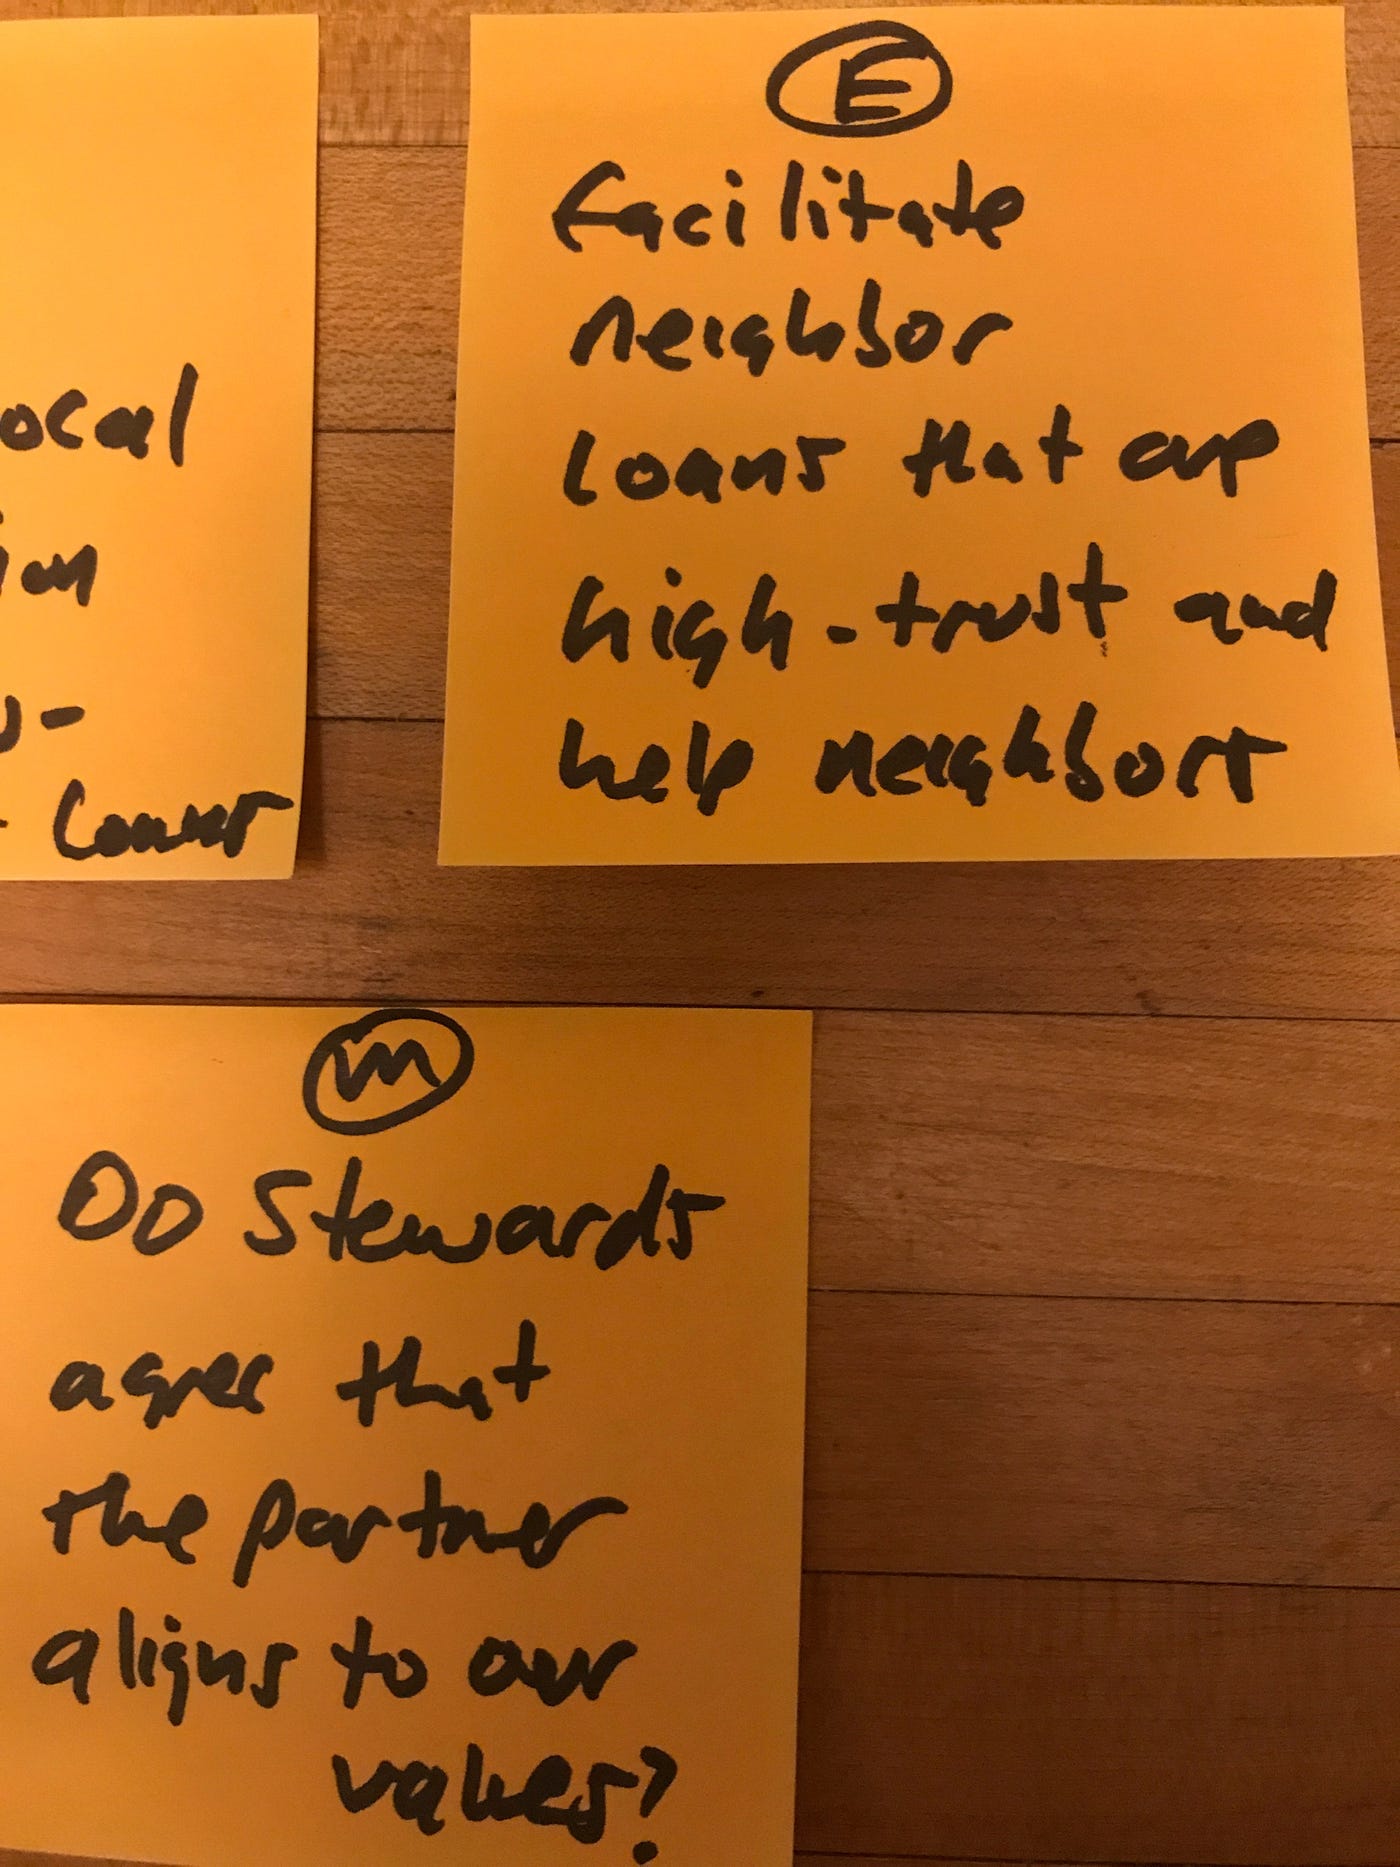 E
facilitate
neighbor
loans that are
high-trust and
help neighbors
ocal
ion
-
M
Do Stewards
agree that
the partner
aligns to our
values?